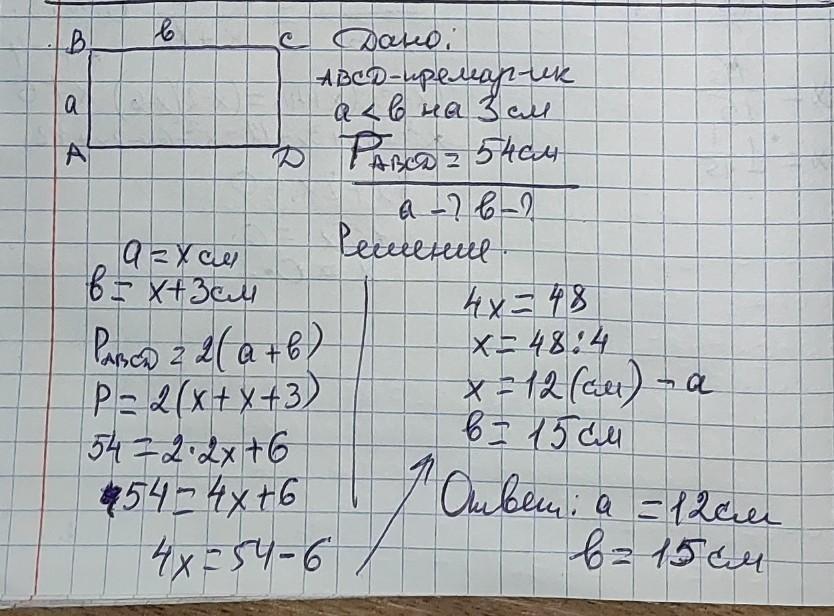 B в C
a
A D
Дано:
ABCD-прямоуг-ик
a < в на 3 см
PABCD = 54см
a -? в -?
Решение.
a = x см
в = x+3см
PABCD = 2(a+в)
P = 2(x+x+3)
54 = 2·2x+6
54 = 4x+6
4x = 54-6
4x = 48
x = 48:4
x = 12 (см) - a
в = 15 см
Ответ: a = 12см
в = 15 см